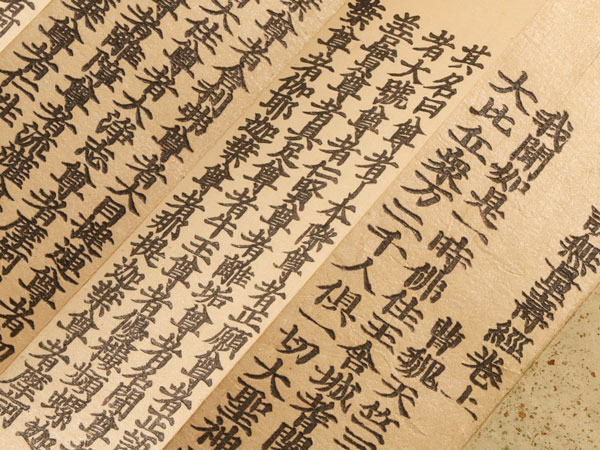 無量壽經卷上
曹魏天竺三
我聞如是一時佛住王舍城耆闍
大比丘衆万二千人俱一切大聖神
其名曰尊者了本際尊者正願尊者正語
者大號尊者仁賢尊者離垢尊者名聞尊
善實尊者具足尊者牛王尊者優樓頻螺迦
葉尊者伽耶迦葉尊者那提迦葉尊者摩訶迦
尊者舍利弗尊者大目揵連尊者劫
大住尊者大淨志尊者摩訶
者離障尊者流灌
尊者仁性